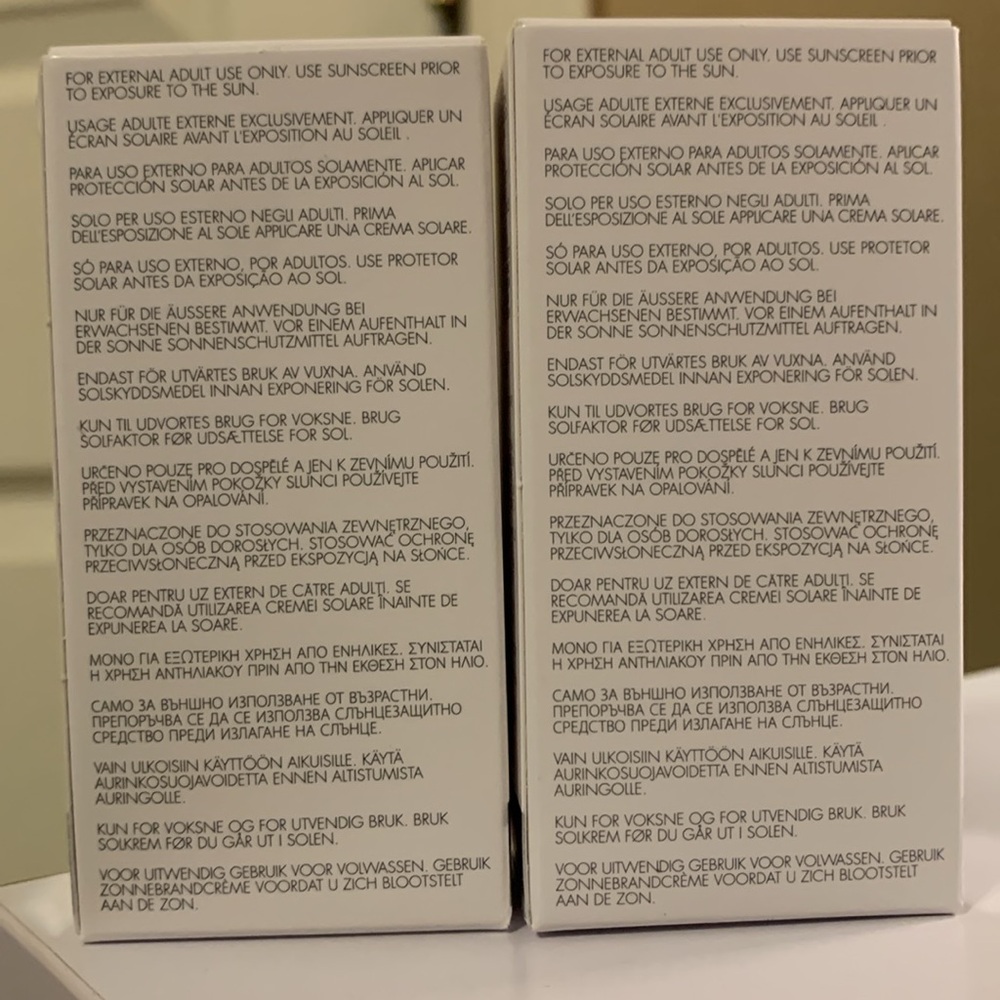 FOR EXTERNAL ADULT USE ONLY. USE SUNSCREEN PRIOR
TO EXPOSURE TO THE SUN.
USAGE ADULTE EXTERNE EXCLUSIVEMENT. APPLIQUER UN
ÉCRAN SOLAIRE AVANT L'EXPOSITION AU SOLEIL .
PARA USO EXTERNO PARA ADULTOS SOLAMENTE. APLICAR
PROTECCIÓN SOLAR ANTES DE LA EXPOSICIÓN AL SOL.
SOLO PER USO ESTERNO NEGLI ADULTI. PRIMA
DELL'ESPOSIZIONE AL SOLE APPLICARE UNA CREMA SOLARE.
SÓ PARA USO EXTERNO, POR ADULTOS. USE PROTETOR
SOLAR ANTES DA EXPOSIÇÃO AO SOL.
NUR FÜR DIE ÄUSSERE ANWENDUNG BEI
ERWACHSENEN BESTIMMT. VOR EINEM AUFENTHALT IN
DER SONNE SONNENSCHUTZMITTEL AUFTRAGEN.
ENDAST FÖR UTVÄRTES BRUK AV VUXNA. ANVÄND
SOLSKYDDSMEDEL INNAN EXPONERING FÖR SOLEN.
KUN TIL UDVORTES BRUG FOR VOKSNE. BRUG
SOLFAKTOR FØR UDSÆTTELSE FOR SOL.
URČENO POUZE PRO DOSPĚLÉ A JEN K ZEVNÍMU POUŽITÍ.
PŘED VYSTAVENÍM POKOŽKY SLUNCI POUŽÍVEJTE
PŘÍPRAVEK NA OPALOVÁNÍ.
PRZEZNACZONE DO STOSOWANIA ZEWNĘTRZNEGO,
TYLKO DLA OSÓB DOROSŁYCH. STOSOWAĆ OCHRONĘ
PRZECIWSŁONECZNĄ PRZED EKSPOZYCJĄ NA SŁOŃCE.
DOAR PENTRU UZ EXTERN DE CĂTRE ADULȚI. SE
RECOMANDĂ UTILIZAREA CREMEI SOLARE ÎNAINTE DE
EXPUNEREA LA SOARE.
ΜΟΝΟ ΓΙΑ ΕΞΩΤΕΡΙΚΗ ΧΡΗΣΗ ΑΠΟ ΕΝΗΛΙΚΕΣ. ΣΥΝΙΣΤΑΤΑΙ
Η ΧΡΗΣΗ ΑΝΤΗΛΙΑΚΟΥ ΠΡΙΝ ΑΠΟ ΤΗΝ ΕΚΘΕΣΗ ΣΤΟΝ ΗΛΙΟ.
САМО ЗА ВЪНШНО ИЗПОЛЗВАНЕ ОТ ВЪЗРАСТНИ.
ПРЕПОРЪЧВА СЕ ДА СЕ ИЗПОЛЗВА СЛЪНЦЕЗАЩИТНО
СРЕДСТВО ПРЕДИ ИЗЛАГАНЕ НА СЛЪНЦЕ.
VAIN ULKOISIIN KÄYTTÖÖN AIKUISILLE. KÄYTÄ
AURINKOSUOJAVOIDETTA ENNEN ALTISTUMISTA
AURINGOLLE.
KUN FOR VOKSNE OG FOR UTVENDIG BRUK. BRUK
SOLKREM FØR DU GÅR UT I SOLEN.
VOOR UITWENDIG GEBRUIK VOOR VOLWASSEN. GEBRUIK
ZONNEBRANDCRÈME VOORDAT U ZICH BLOOTSTELT
AAN DE ZON.
FOR EXTERNAL ADULT USE ONLY. USE SUNSCREEN PRIOR
TO EXPOSURE TO THE SUN.
USAGE ADULTE EXTERNE EXCLUSIVEMENT. APPLIQUER UN
ÉCRAN SOLAIRE AVANT L'EXPOSITION AU SOLEIL .
PARA USO EXTERNO PARA ADULTOS SOLAMENTE. APLICAR
PROTECCIÓN SOLAR ANTES DE LA EXPOSICIÓN AL SOL.
SOLO PER USO ESTERNO NEGLI ADULTI. PRIMA
DELL'ESPOSIZIONE AL SOLE APPLICARE UNA CREMA SOLARE.
SÓ PARA USO EXTERNO, POR ADULTOS. USE PROTETOR
SOLAR ANTES DA EXPOSIÇÃO AO SOL.
NUR FÜR DIE ÄUSSERE ANWENDUNG BEI
ERWACHSENEN BESTIMMT. VOR EINEM AUFENTHALT IN
DER SONNE SONNENSCHUTZMITTEL AUFTRAGEN.
ENDAST FÖR UTVÄRTES BRUK AV VUXNA. ANVÄND
SOLSKYDDSMEDEL INNAN EXPONERING FÖR SOLEN.
KUN TIL UDVORTES BRUG FOR VOKSNE. BRUG
SOLFAKTOR FØR UDSÆTTELSE FOR SOL.
URČENO POUZE PRO DOSPĚLÉ A JEN K ZEVNÍMU POUŽITÍ.
PŘED VYSTAVENÍM POKOŽKY SLUNCI POUŽÍVEJTE
PŘÍPRAVEK NA OPALOVÁNÍ.
PRZEZNACZONE DO STOSOWANIA ZEWNĘTRZNEGO,
TYLKO DLA OSÓB DOROSŁYCH. STOSOWAĆ OCHRONĘ
PRZECIWSŁONECZNĄ PRZED EKSPOZYCJĄ NA SŁOŃCE.
DOAR PENTRU UZ EXTERN DE CĂTRE ADULȚI. SE
RECOMANDĂ UTILIZAREA CREMEI SOLARE ÎNAINTE DE
EXPUNEREA LA SOARE.
ΜΟΝΟ ΓΙΑ ΕΞΩΤΕΡΙΚΗ ΧΡΗΣΗ ΑΠΟ ΕΝΗΛΙΚΕΣ. ΣΥΝΙΣΤΑΤΑΙ
Η ΧΡΗΣΗ ΑΝΤΗΛΙΑΚΟΥ ΠΡΙΝ ΑΠΟ ΤΗΝ ΕΚΘΕΣΗ ΣΤΟΝ ΗΛΙΟ.
САМО ЗА ВЪНШНО ИЗПОЛЗВАНЕ ОТ ВЪЗРАСТНИ.
ПРЕПОРЪЧВА СЕ ДА СЕ ИЗПОЛЗВА СЛЪНЦЕЗАЩИТНО
СРЕДСТВО ПРЕДИ ИЗЛАГАНЕ НА СЛЪНЦЕ.
VAIN ULKOISIIN KÄYTTÖÖN AIKUISILLE. KÄYTÄ
AURINKOSUOJAVOIDETTA ENNEN ALTISTUMISTA
AURINGOLLE.
KUN FOR VOKSNE OG FOR UTVENDIG BRUK. BRUK
SOLKREM FØR DU GÅR UT I SOLEN.
VOOR UITWENDIG GEBRUIK VOOR VOLWASSEN. GEBRUIK
ZONNEBRANDCRÈME VOORDAT U ZICH BLOOTSTELT
AAN DE ZON.